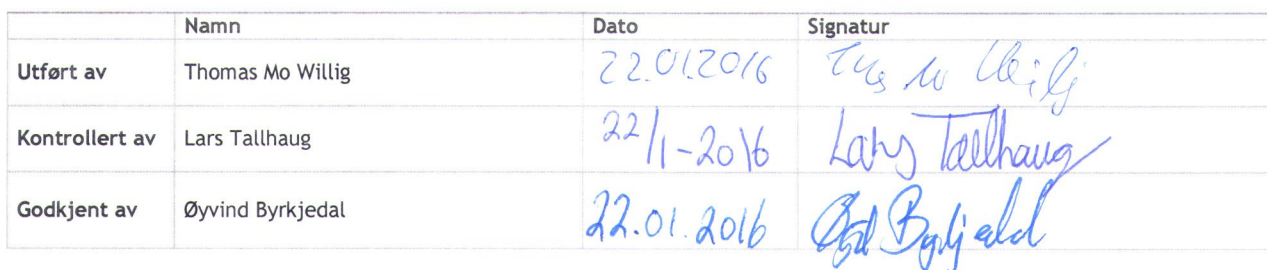 Namn Dato Signatur
Utført av Thomas Mo Willig 22.01.2016
Kontrollert av Lars Tallhaug 22/1-2016 Lars Tallhaug
Godkjent av Øyvind Byrkjedal 22.01.2016